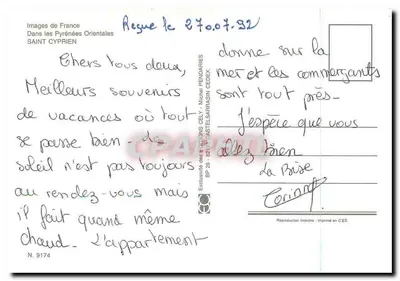 Images de France
Dans les Pyrénées Orientales
SAINT CYPRIEN
Reçue le 27.07.92
Chers tous deux,
Meilleurs souvenirs
de vacances où tout
se passe bien - Le
soleil n'est pas toujours
au rendez-vous mais
il fait quand même
chaud. L'appartement
N. 9174
donne sur la
mer et les commerçants
sont tout près-
J'espère que vous
allez bien
La Bise
Corinne
Reproduction interdite - Imprimé en CEE
CPARAMA